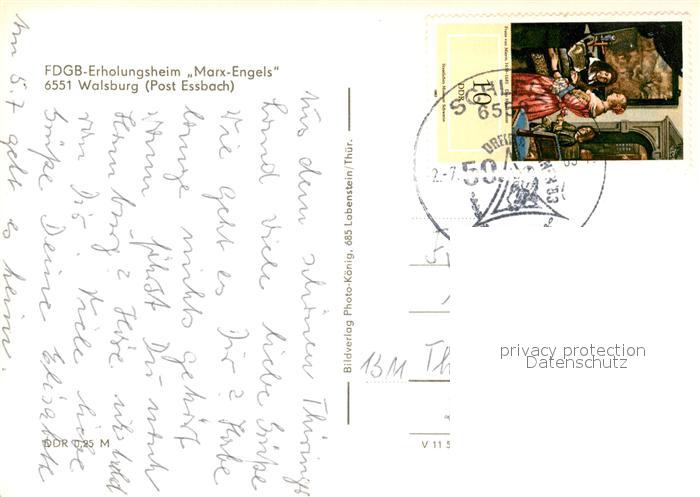 FDGB-Erholungsheim „Marx-Engels"
6551 Walsburg (Post Essbach)
Aus dem schönen Thüringer
Land viele liebe Grüße
Wie geht es Dir? Habe
lange nichts gehört
Wann fährst Du nach
Hamburg? Höre
von Dir. Viele liebe
Grüße Deine Elisabeth
Am 5.7 geht es heim.
DDR 0,25 M
Bildverlag Photo-König, 685 Lobenstein/Thür.
V 11 5
DDR
10
2.-7.
50
privacy protection
Datenschutz